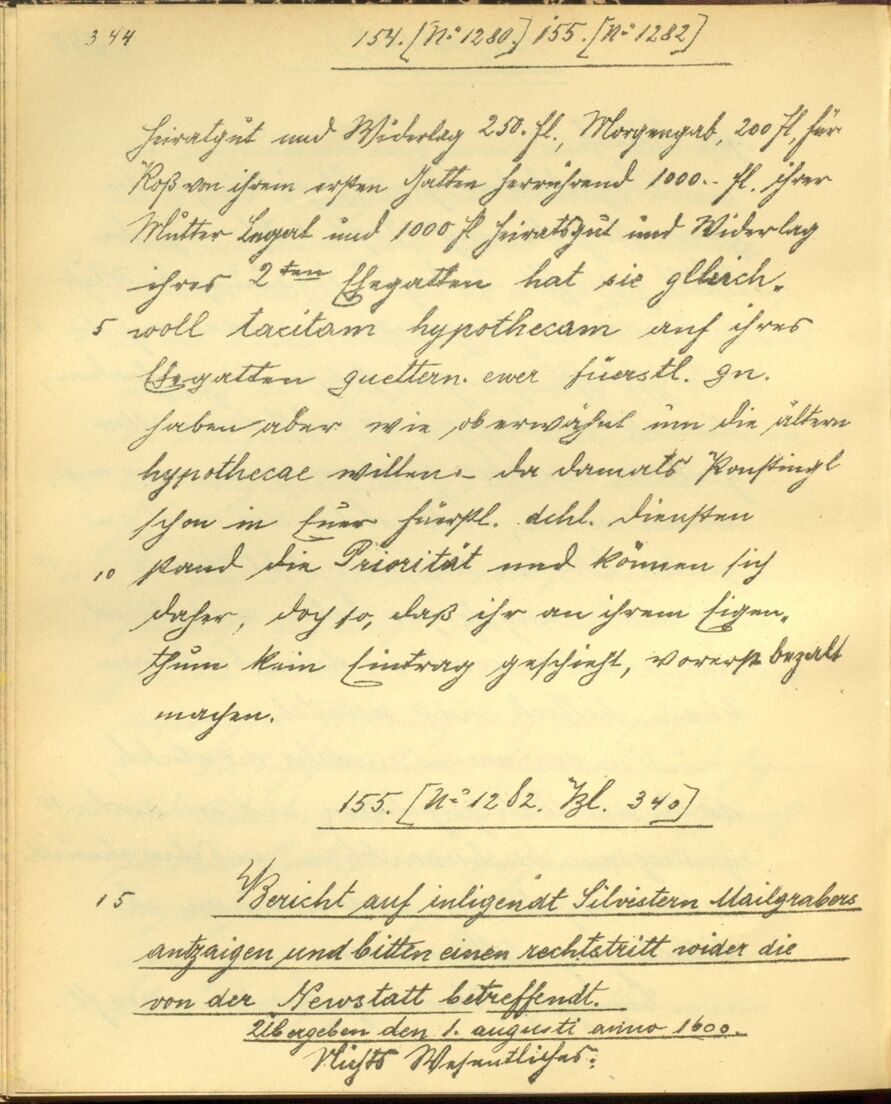 344
154. [N° 1280.] 155. [N° 1282]
Heiratgut und Widerlag 250. fl., Morgengab, 200 fl, für
Roß von ihrem ersten Gatten herrührend 1000.- fl. ihrer
Mutter Legat und 1000 fl Heiratsgut und Widerlag
ihres 2ten Ehegatten hat sie gleich„
5 woll tacitam hypothecam auf ihres
Ehegatten guettern. ewer füerstl. gn.
haben aber wie ob erwähnt um die ältern
hypothecae willen - da damals
schon in Euer fürstl. dchl. diensten
10 stand die Priorität und können sich
daher, doch so, daß ihr an ihrem Eigen„
thum kein Eintrag geschieht, vorerst bezalt
machen.
155. [N° 1282. Bl. 340]
15 Bericht auf inligendt Silvistern Mailgrabers
antzaigen und bitten einen rechtstritt wider die
von der Newstatt betreffendt.
Übergeben den 1. augusti anno 1600.
Nichts Wesentliches.